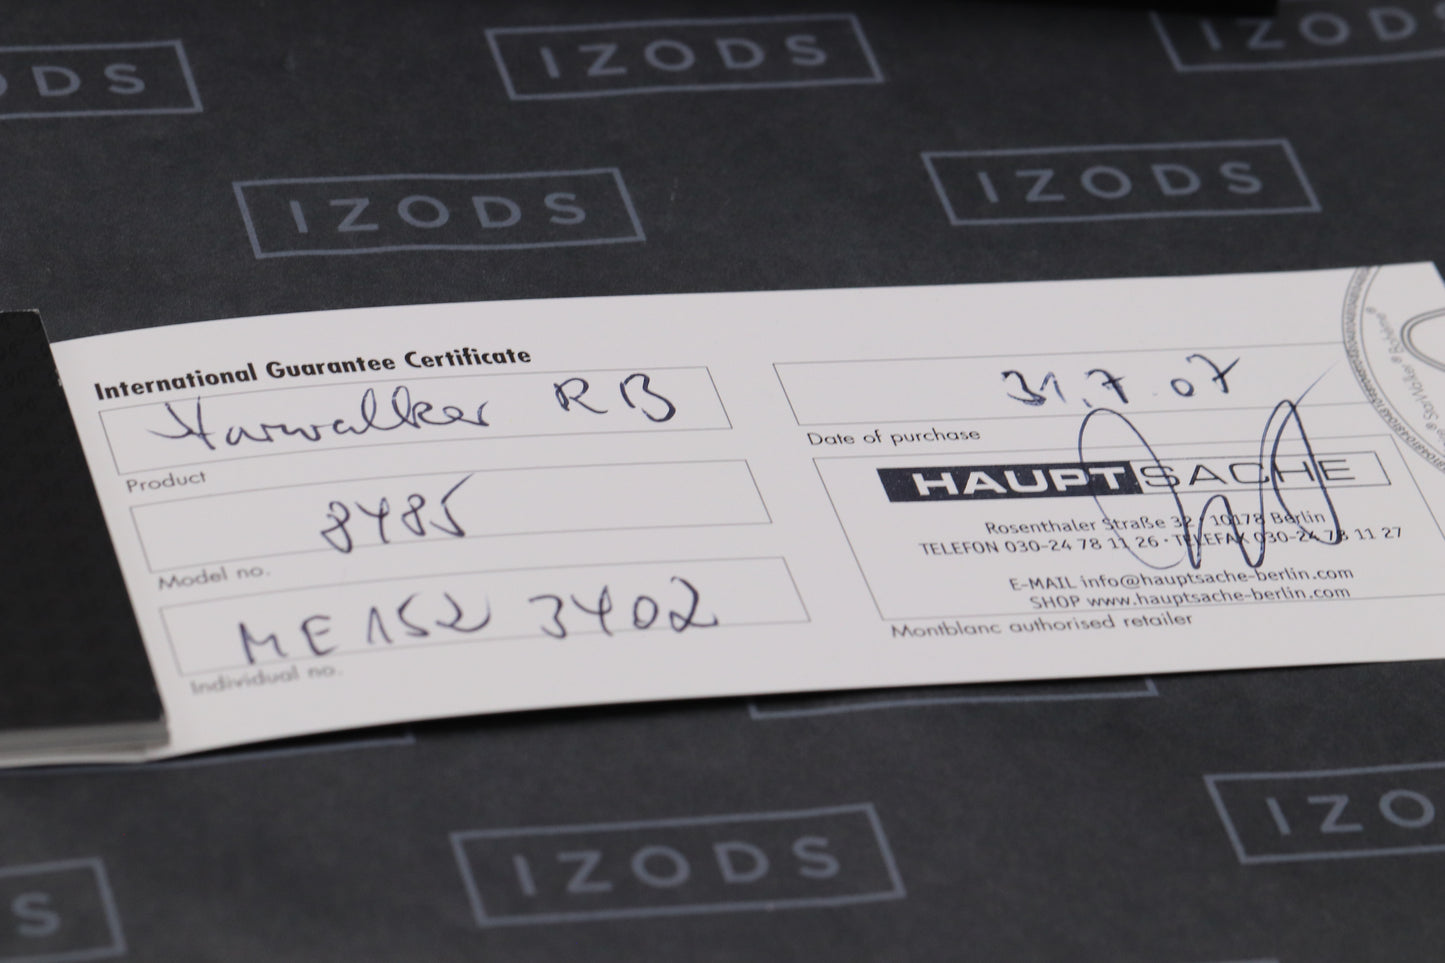 IZODS
IZODS
IZODS
IZODS
IZODS
International Guarantee Certificate
Starwalker RB
Product
8485
Model no.
ME152 3402
Individual no.
31.7.07
Date of purchase
HAUPTSACHE
Rosenthaler Straße 32 · 10178 Berlin
TELEFON 030-24 78 11 26 · TELEFAX 030-24 78 11 27
E-MAIL info@hauptsache-berlin.com
SHOP www.hauptsache-berlin.com
Montblanc authorised retailer
StarWalker® Bohème®
IZODS
IZO
S